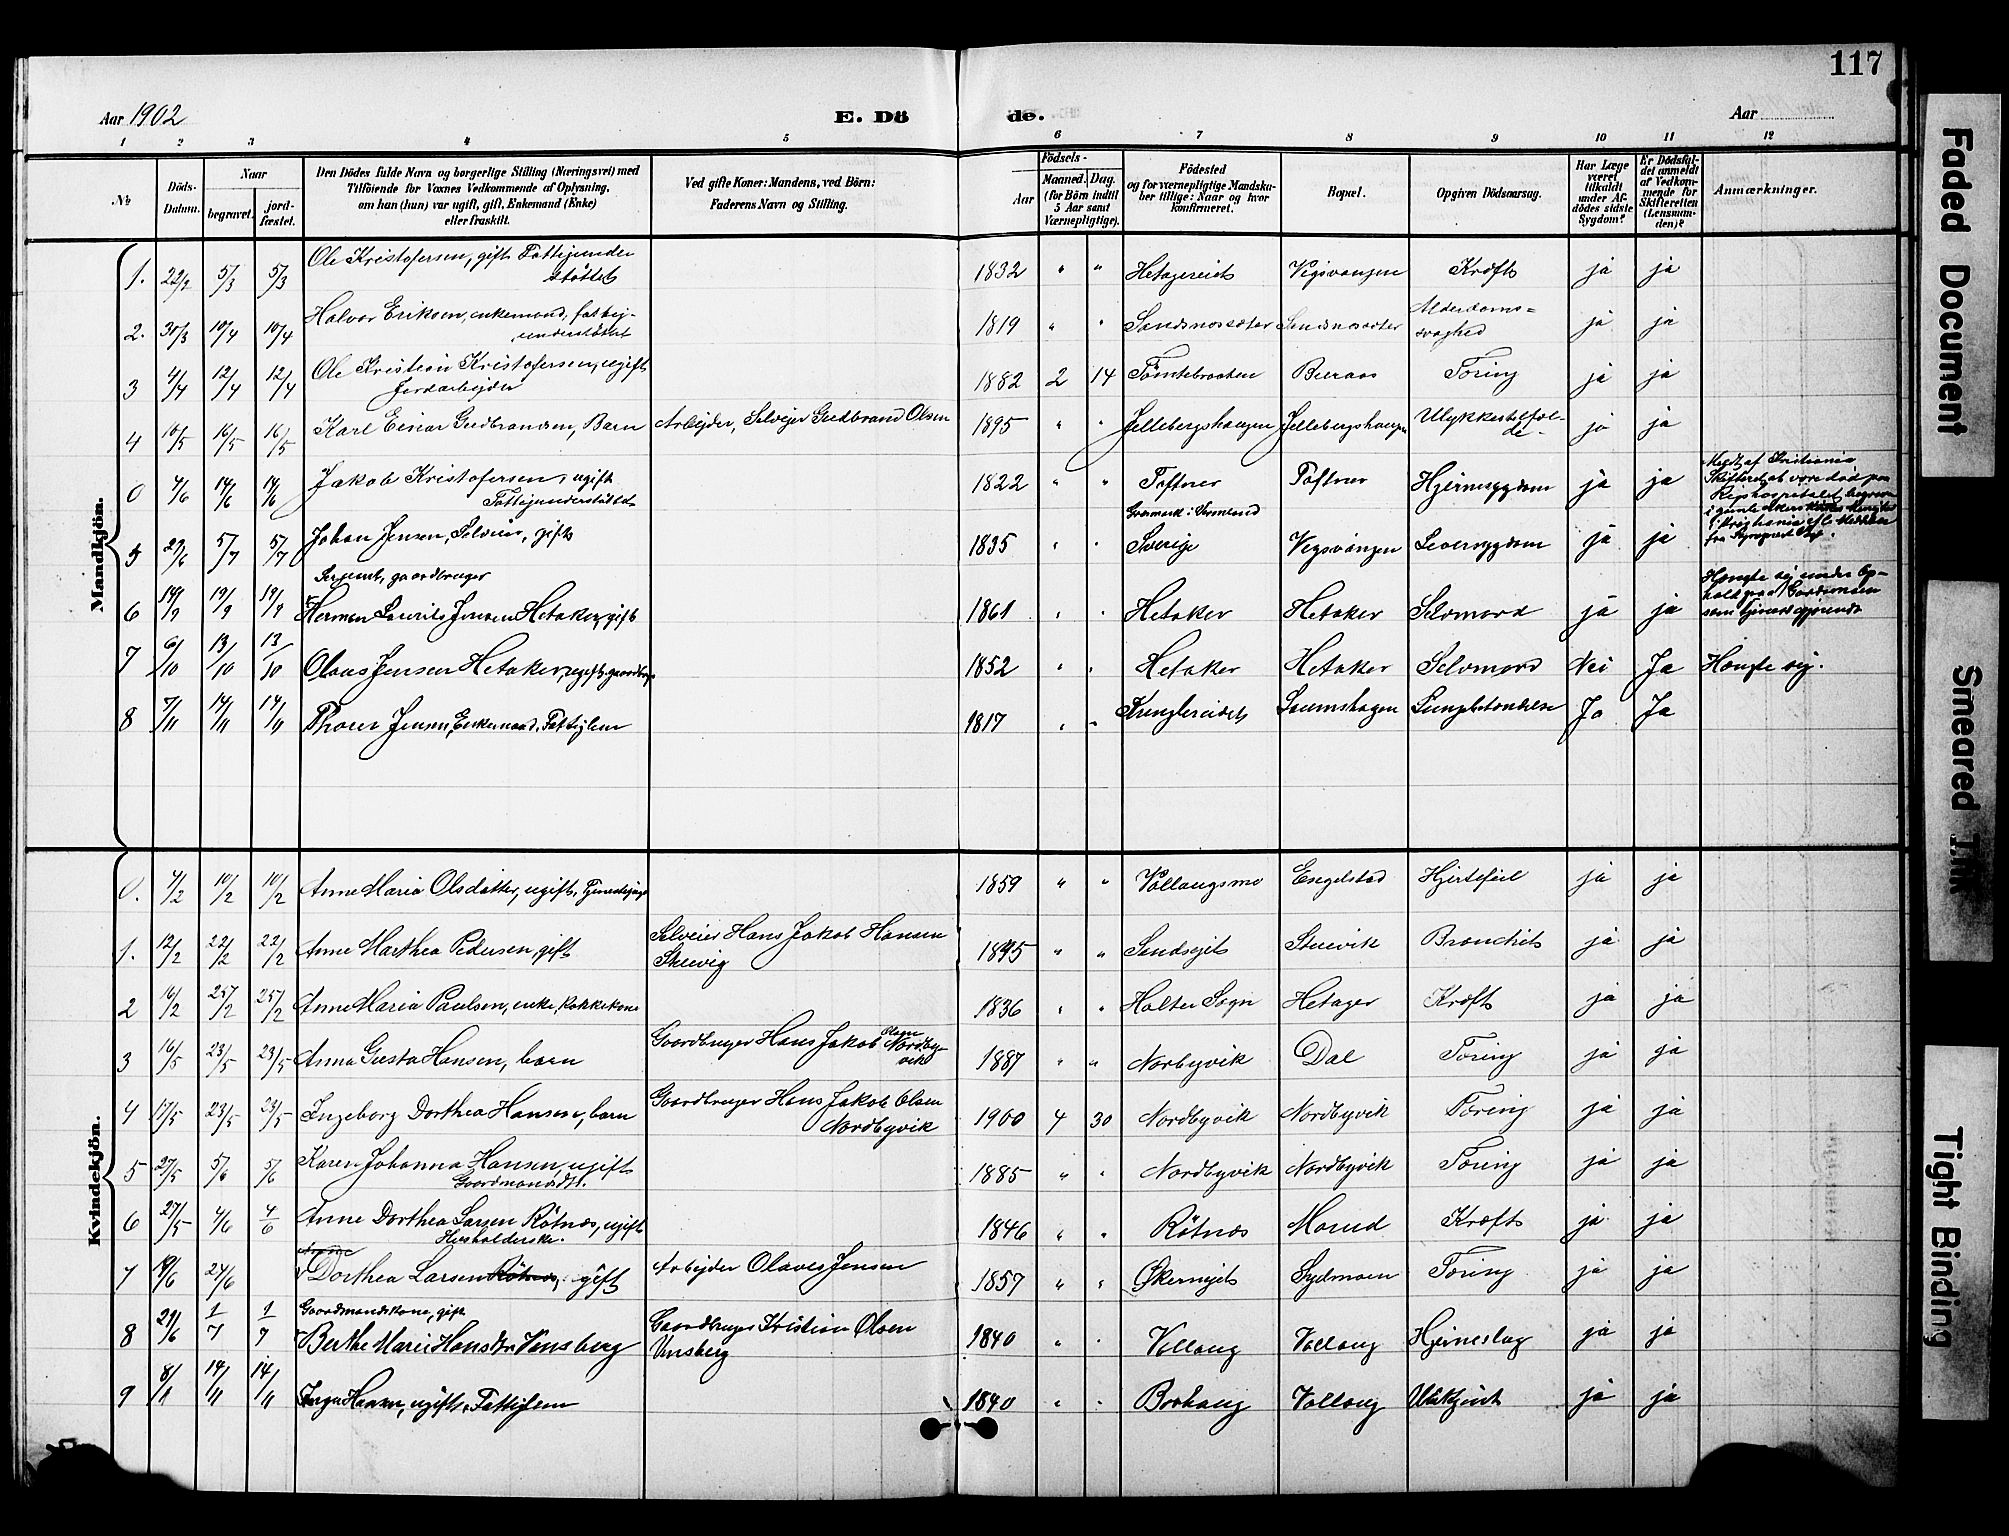 117
Aar 1902
E. Dö
de.
Aar
1 2 3 4 5 6 7 8 9 10 11 12
№
Döds-Datum.
Naar
begravet.
jord-fæstet.
Den Dödes fulde Navn og borgerlige Stilling (Næringsvei) med
Tilföiende for Voxnes Vedkommende af Oplysning,
om han (hun) var ugift, gift, Enkemand (Enke)
eller fraskilt.
Ved gifte Koner: Mandens, ved Börn:
Faderens Navn og Stilling.
Födsels-
Aar
Maaned. Dag.
(for Börn indtil
5 Aar samt
Værnepligtige).
Födested
og for værnepligtige Mandska-
ber tillige: Naar og hvor
konfirmeret.
Bopæl.
Opgiven Dödsaarsag.
Har Læge
været
tilkaldt
under Af-
dödes sidste
Sygdom?
Er Dödsfal-
det anmeldt
af Vedkom-
mende for
Skifteretten
(Lensman-
den)?
Anmærkninger.
Mandkjön.
1. 22/2 5/3 5/3 Ole Kristofersen, gift Fattigunder
støttet 1832 " " Hetagereiet Vigsvangen Kræft ja ja
2. 30/3 10/4 10/4 Halvor Eriksen, enkemand, fattig-
understøttet 1819 " " Sandsnessæter Sandsnessæter Alderdoms=
svaghed ja ja
3 4/4 12/4 12/4 Ole Kristian Kristofersen, ugift
Jordarbejder 1882 2 14 Tømtebraaten Beeraas Tæring ja ja
4 10/5 16/5 16/5 Karl Einar Gudbrandsen, Barn Arbejder, Selvejer Gudbrand Olsen 1895 " " Jellebergshaugen Jellebergshaugen Ulykkestilfæl-
de ja ja
0 4/6 14/6 14/6 Jakob Kristofersen, ugift
Fattigunderstøttet 1822 " " Toftner Toftner Hjernesygdom ja ja
5 27/6 5/7 5/7 Johan Jensen, Selveier, gift 1835 " " Sverige Vegsvangen Leversygdom ja ja
6 14/9 19/9 19/9 Sergeant, gaardbruger
Herman Laurits Jensen Hetaker, gift 1861 " " Hetaker Hetaker Selvmord ja ja
7 6/10 13/10 13/10 Olaus Jensen Hetaker, ugift, gaardbr. 1852 " " Hetaker Hetaker Selvmord Nei Ja Hængte sig.
8 7/11 14/11 14/11 Thorer Jensen, Enkemand, Fattiglem 1817 " " Krunglereidet Saumshagen Lungebetændelse Ja Ja
Kvindekjön.
0. 4/2 10/2 10/2 Anne Maria Olsdatter, ugift, Tjenestepige 1859 " " Vollaugsmo Engelstad Hjertefeil ja ja
1. 12/2 22/2 22/2 Anne Marthea Pedersen, gift Selveier Hans Jakob Hansen
Stuevig 1845 " " Sandsejet Stuevik Bronchit ja ja
2 16/2 25/2 25/2 Anne Maria Paulsen, enke, Kokkekone 1836 " " Holter Sogn Hetager Kræft ja ja
3 16/5 23/5 23/5 Anna Gusta Hansen, barn Gaardbruger Hans Jakob Olsen Nordby-
vik 1887 " " Norbyvik Dal Tæring ja ja
4 17/5 23/5 23/5 Ingeborg Dorthea Hansen, barn Gaardbruger Hans Jakob Olsen
Nordbyvik 1900 4 30 Nordbyvik Nordbyvik Tæring ja ja
5 27/5 5/6 5/6 Karen Johanna Hansen, ugift
Gaardmandsdt. 1885 " " Nordbyvik Nordbyvik Tæring ja ja
6 27/5 4/6 4/6 Anne Dorthea Larsen Røtnæs, ugift
Husholderske. 1846 " " Røtnæs Maurud Kræft ja ja
7 19/6 24/6 Anne
Dorthea Larsen Røtnæs, gift Arbejder Olaves Jensen 1857 " " Økernejet Tæring ja ja
8 24/6 1/7 1/7 Gaardmandskone, gift
Berthe Marie Hansdtr Vensberg Gaardbruger Kristian Olsen
Vensberg 1840 " " Vollaug Vollaug Hjerneslag ja ja
9 8/11 14/11 14/11 Inga Hansen, ugift, Fattiglem 1840 " " Borhaug Vollaug Ubekjendt ja ja
Faded Document
Smeared Ink
Tight Binding